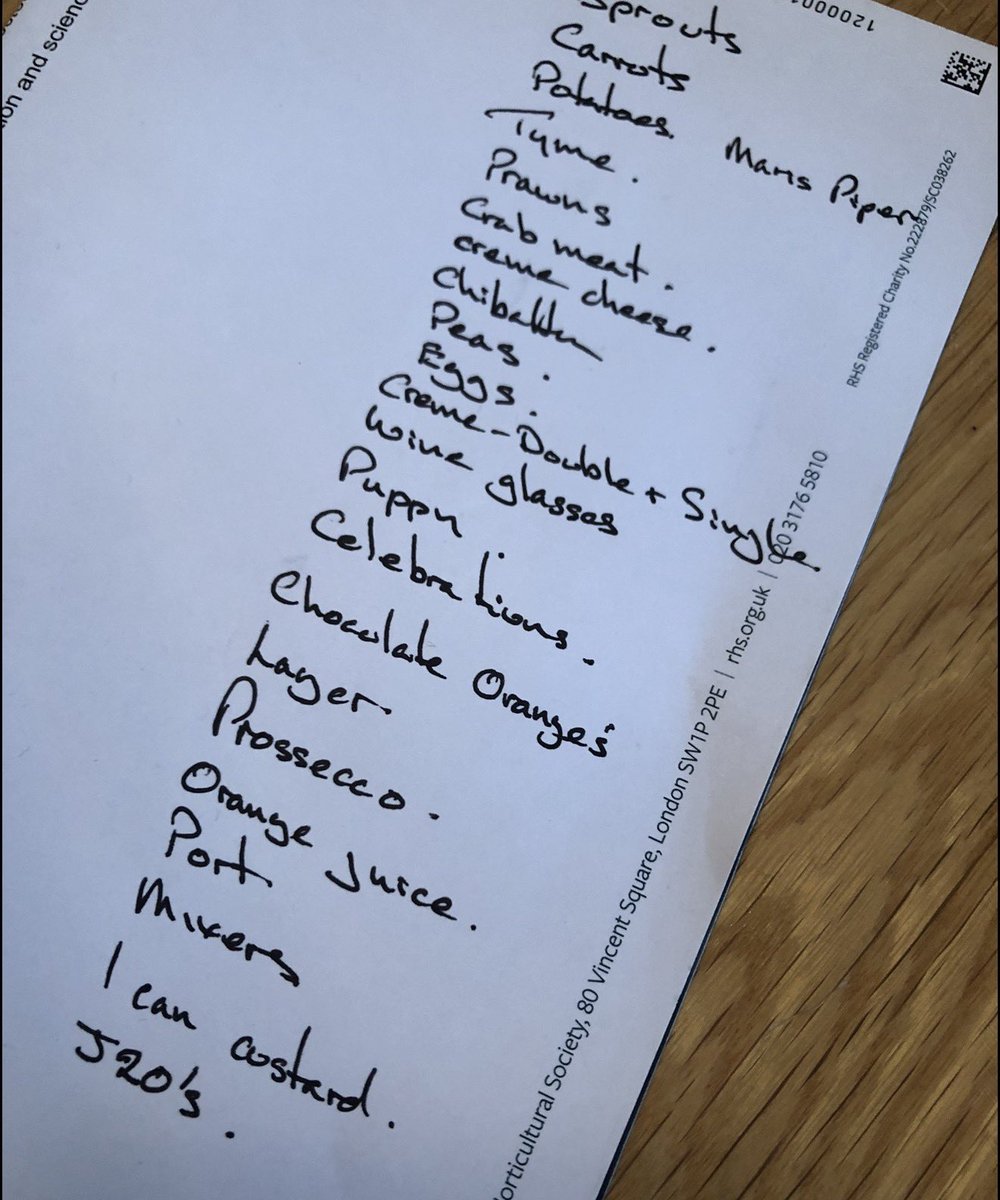 Sprouts
Carrots
Potatoes. Maris Piper
Tyme.
Prawns
Crab meat.
creme cheese.
Peas.
Eggs.
Creme-Double + Single.
Wine glasses
Puppy
Celebrations.
Chocolate Oranges'
Lager.
Prossecco.
Orange Juice.
Port
Mixers
1 can custard.
J20's.
ion and scienc
120000
RHS Registered Charity No.222879/SC038262
orticultural Society, 80 Vincent Square, London SW1P 2PE | rhs.org.uk | 020 3176 5810